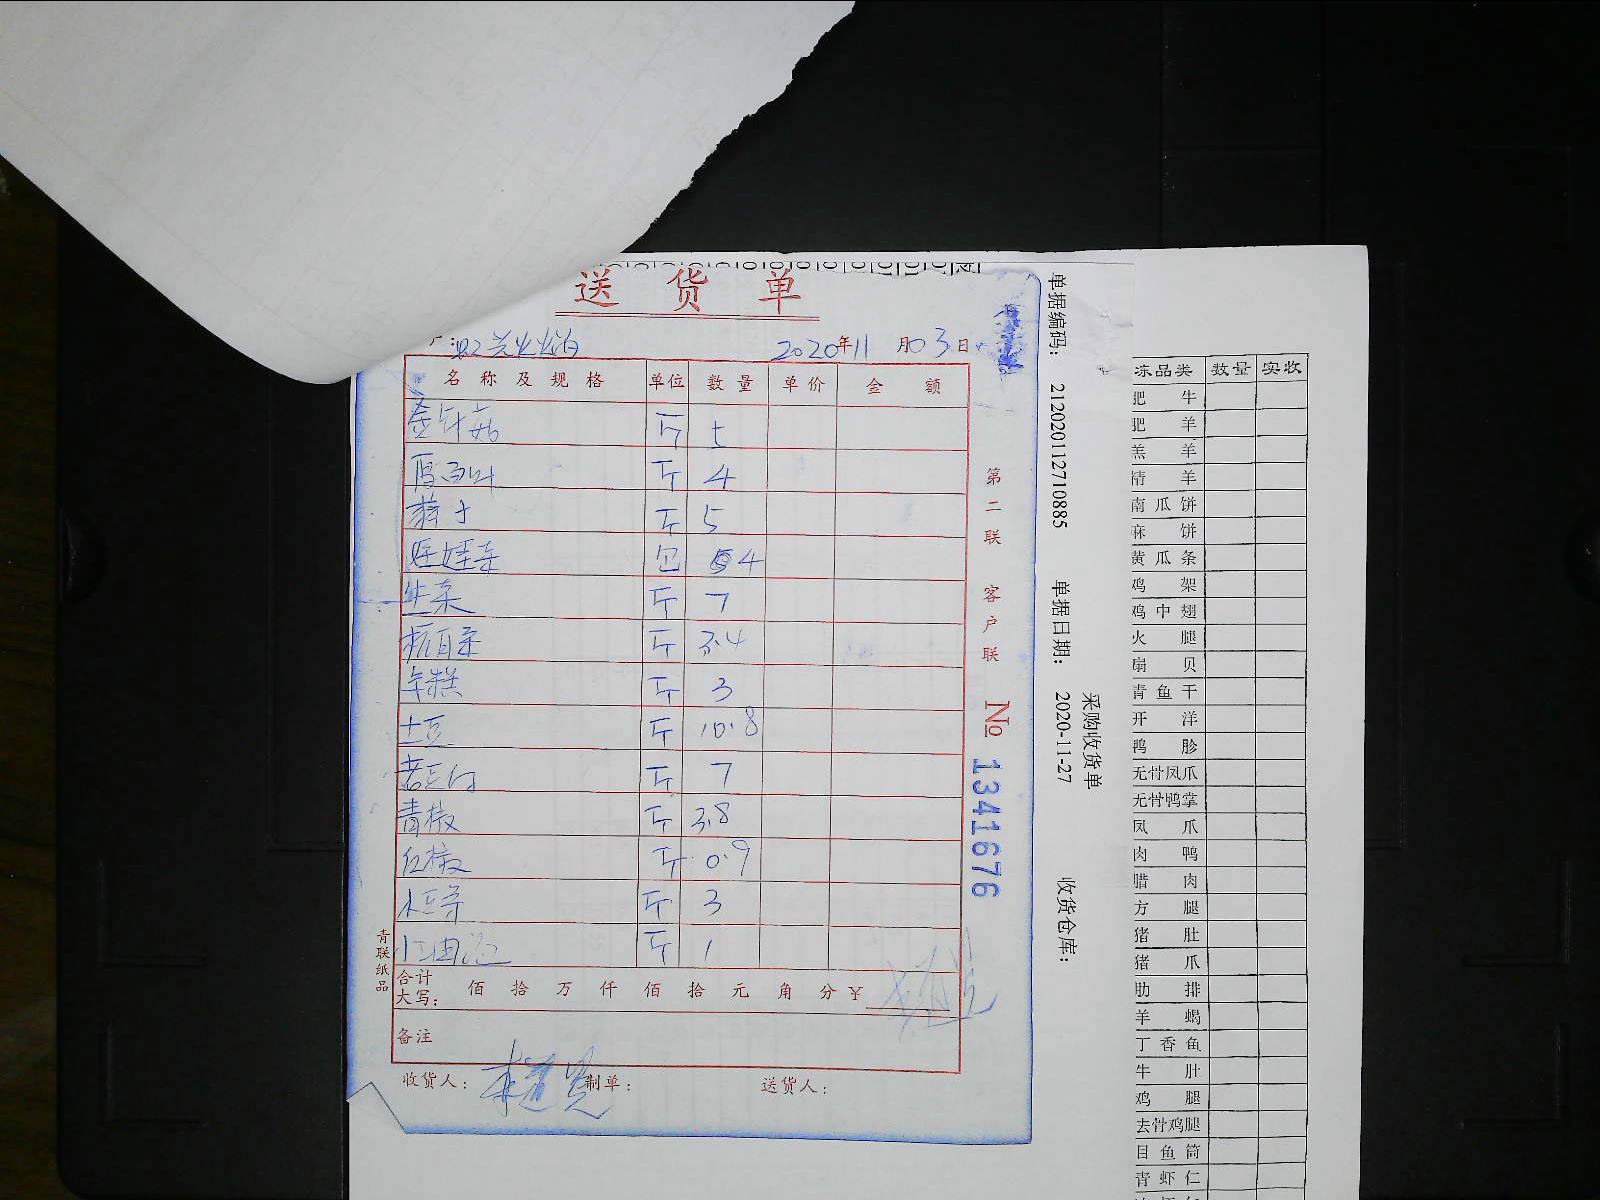 送 货 单
2020年11月03日
名 称 及 规 格 单位 数量 单价 金 额
金针菇 斤 5
厚百叶 斤 4
斤 5
娃娃菜 包 4
生菜 斤 7
杭白菜 斤 3.4
年糕 斤 3
土豆 斤 10.8
斤 7
青椒 斤 3.8
红椒 斤 0.9
斤 3
斤 1
合计
大写: 佰 拾 万 仟 佰 拾 元 角 分 ¥
备注
收货人: 制单: 送货人:
青联纸品
第二联 客户联
№ 1341676
单据编码: 212020112710885 单据日期: 2020-11-27 收货仓库:
采购收货单
冻品类 数量 实收
肥牛
肥羊
羔羊
精羊
南瓜饼
麻饼
黄瓜条
鸡架
鸡中翅
火腿
扇贝
青鱼干
开洋
鸭胗
无骨凤爪
无骨鸭掌
凤爪
肉鸭
腊肉
方腿
猪肚
猪爪
肋排
羊蝎
丁香鱼
牛肚
鸡腿
去骨鸡腿
目鱼筒
青虾仁